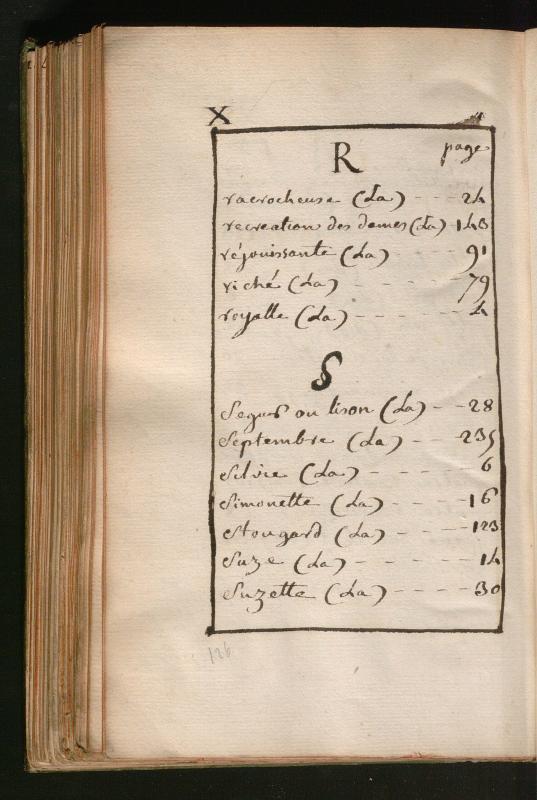 X
R page
racrocheuse (La) - - - 24
recreation des dames (La) - 143
réjouissante (La) - - - 91
riché (La) - - - - - 79
royalle (La) - - - - - 4
S
Segus ou lison (La) - - 28
Septembre (La) - - - 235
Silvie (La) - - - - - 6
Simonette (La) - - - - 16
Stougard (La) - - - 123
Suze (La) - - - - - - 14
Suzette (La) - - - - 30
126